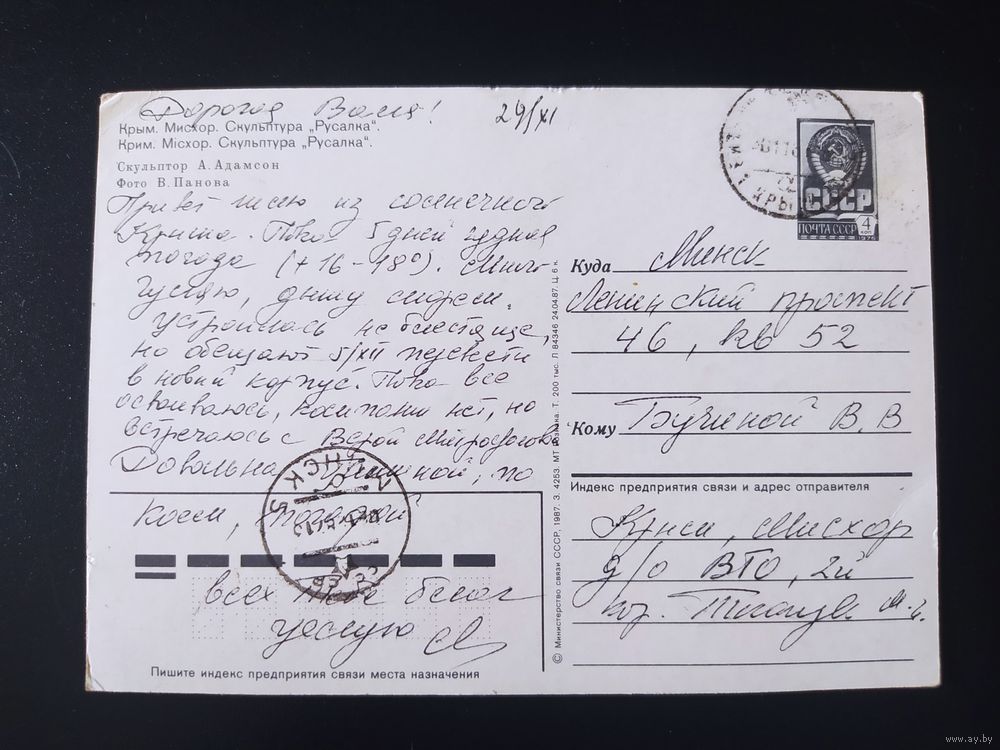 Дорогая Валя! 29/XI
Крым. Мисхор. Скульптура „Русалка“.
Крим. Місхор. Скульптура „Русалка“.
Скульптор А. Адамсон
Фото В. Панова
Привет шлю из солнечного
Крыма. Пока 5 дней чудная
погода (+16-18°). Много
гуляю, дышу морем.
Устроилась не блестяще,
но обещают 5/XII перевести
в новый корпус. Пока все
осваиваюсь, компании нет, но
встречаюсь с Верой
Довольна , по
погодой
всех тебе благ
целую
Пишите индекс предприятия связи места назначения
© Министерство связи СССР, 1987. З. 4253. МТ Т. 200 тыс. Л 84346 24.04.87. Ц. 6 к.
КРЫМ
МИНСК 5
СССР
ПОЧТА СССР 4 коп
1976
Куда Минск
Ленинский проспект
46, кв 52
Кому В. В
Индекс предприятия связи и адрес отправителя
Крым, Мисхор
д/о ВТО, 2й
www.ay.by